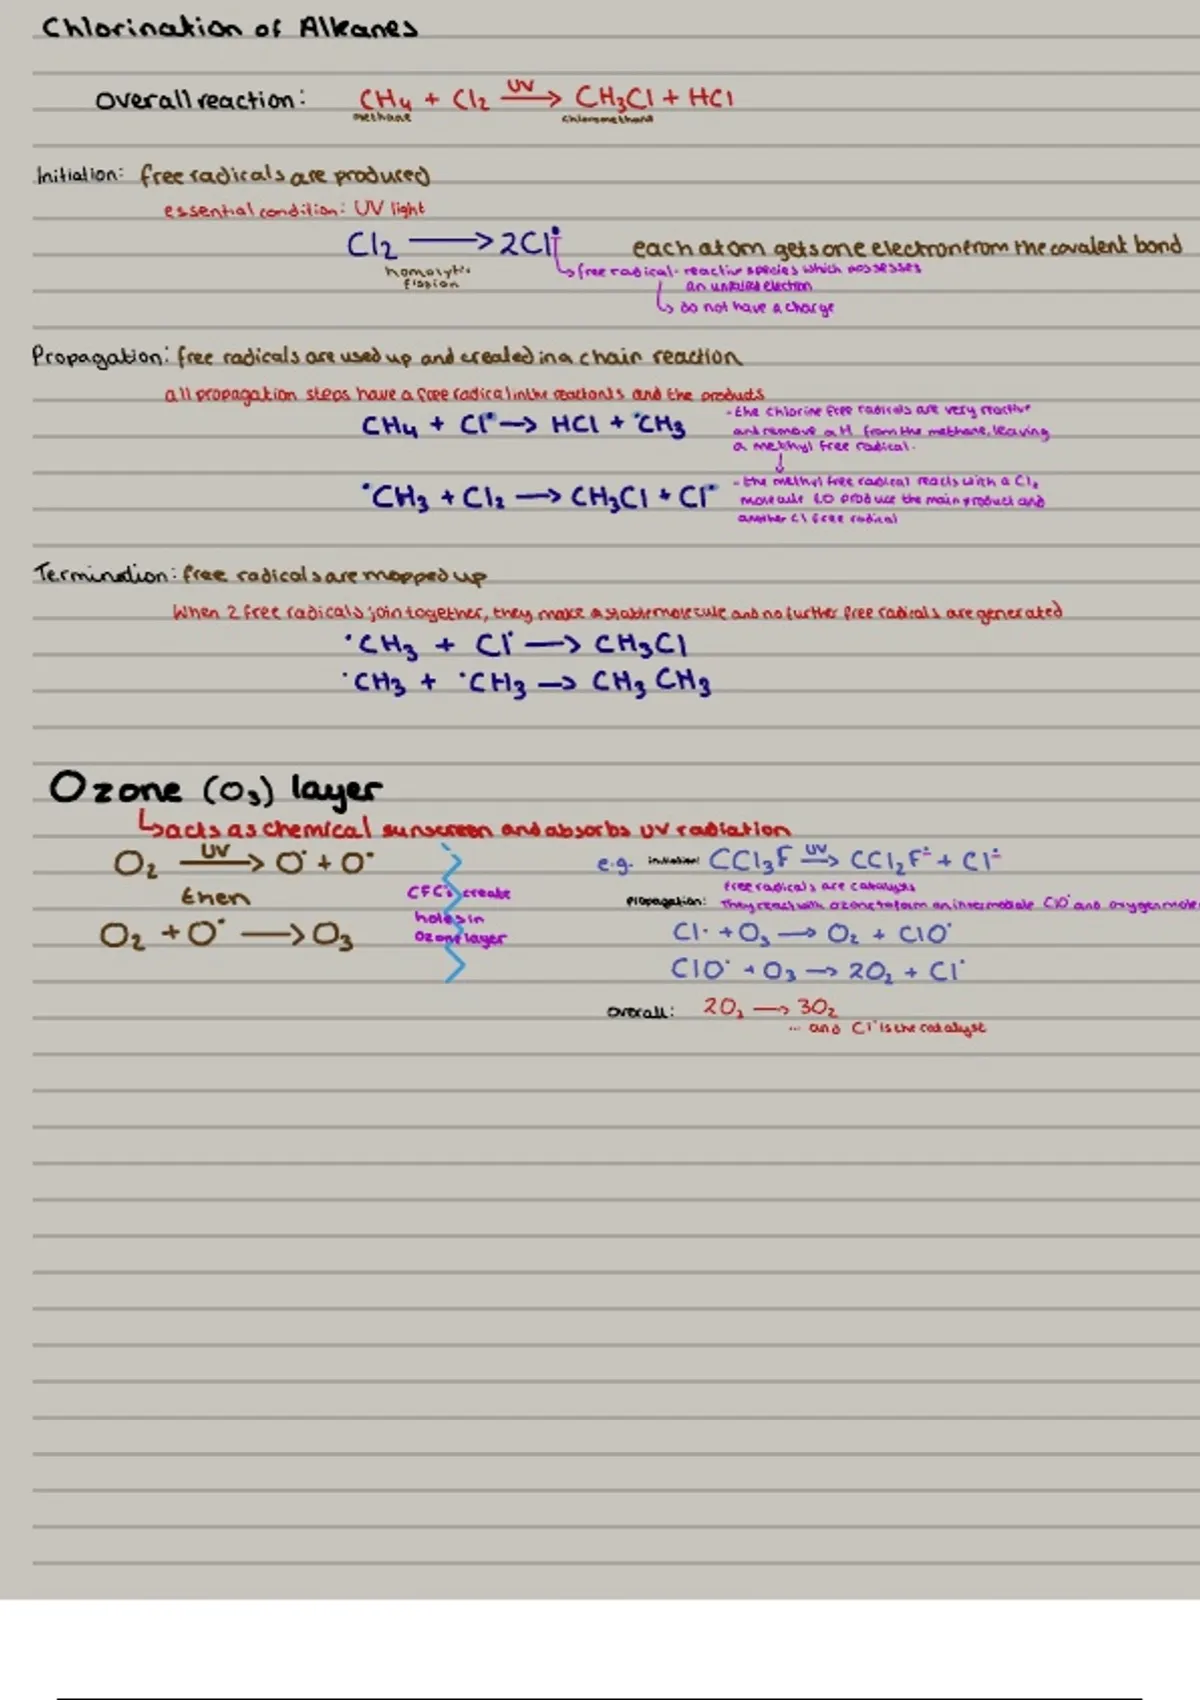 Chlorination of Alkanes
Overall reaction: CH₄ + Cl₂ UV → CH₃Cl + HCl
methane chloromethane
Initiation: free radicals are produced
essential condition: UV light
Cl₂ → 2Cl• each atom gets one electron from the covalent bond
homolytic fission
↳ free radical - reactive species which possesses
an unpaired electron
↳ do not have a charge
Propagation: free radicals are used up and created in a chain reaction
all propagation steps have a free radical in the reactants and the products
CH₄ + Cl• → HCl + •CH₃
- the chlorine free radicals are very reactive
and remove a H from the methane, leaving
a methyl free radical.
↓
•CH₃ + Cl₂ → CH₃Cl + Cl•
- the methyl free radical reacts with a Cl₂
molecule to produce the main product and
another Cl free radical
Termination: free radicals are mopped up
When 2 free radicals join together, they make a stable molecule and no further free radicals are generated
•CH₃ + Cl• → CH₃Cl
•CH₃ + •CH₃ → CH₃CH₃
Ozone (O₃) layer
↳ acts as chemical sunscreen and absorbs UV radiation
O₂ UV → O• + O•
then
O₂ + O• → O₃
CFC's create
holes in
ozone layer
e.g. initiation: CCl₃F UV → CCl₂F• + Cl•
free radicals are catalysts
propagation: They react with ozone to form an intermediate ClO• and oxygen
Cl• + O₃ → O₂ + ClO•
ClO• + O₃ → 2O₂ + Cl•
overall: 2O₃ → 3O₂
... and Cl• is the catalyst